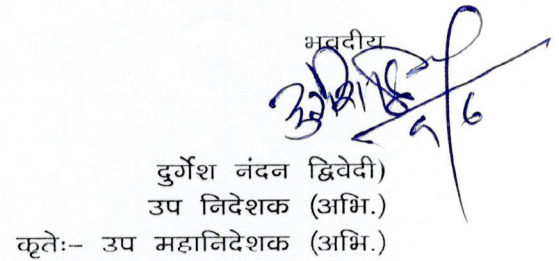 भवदीय
९/६
दुर्गेश नंदन द्विवेदी)
उप निदेशक (अभि.)
कृतेः- उप महानिदेशक (अभि.)